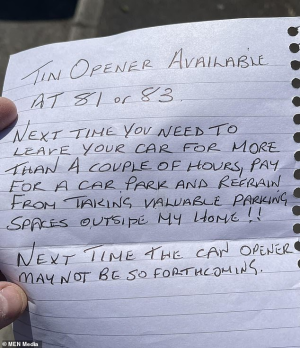 TIN OPENER AVAILABLE
AT 81 or 83.
NEXT TIME YOU NEED TO
LEAVE YOUR CAR FOR MORE
THAN A COUPLE OF HOURS, PAY
FOR A CAR PARK AND REFRAIN
FROM TAKING VALUABLE PARKING
SPACES OUTSIDE MY HOME !!
NEXT TIME THE CAN OPENER
MAY NOT BE SO FORTHCOMING.
© MEN Media